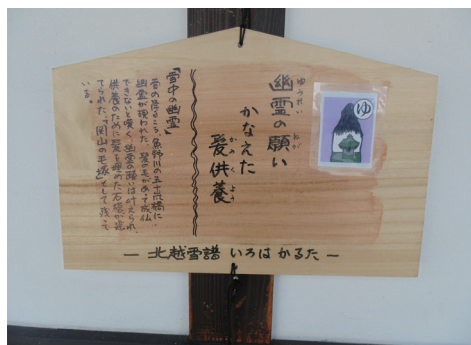 ゆ
ゆうれい ねが
幽霊の願い
かなえた
かみくよう
髪供養
「雪中の幽霊」
雪の降るころ、魚野川の橋に、
幽霊が現われた。髪の毛があって成仏
できないと嘆く幽霊の願いは叶えられ、
供養のために髪を埋めた石塔が建
てられた。「関山の毛塚」として残って
いる。
― 北越雪譜 いろはかるた ―